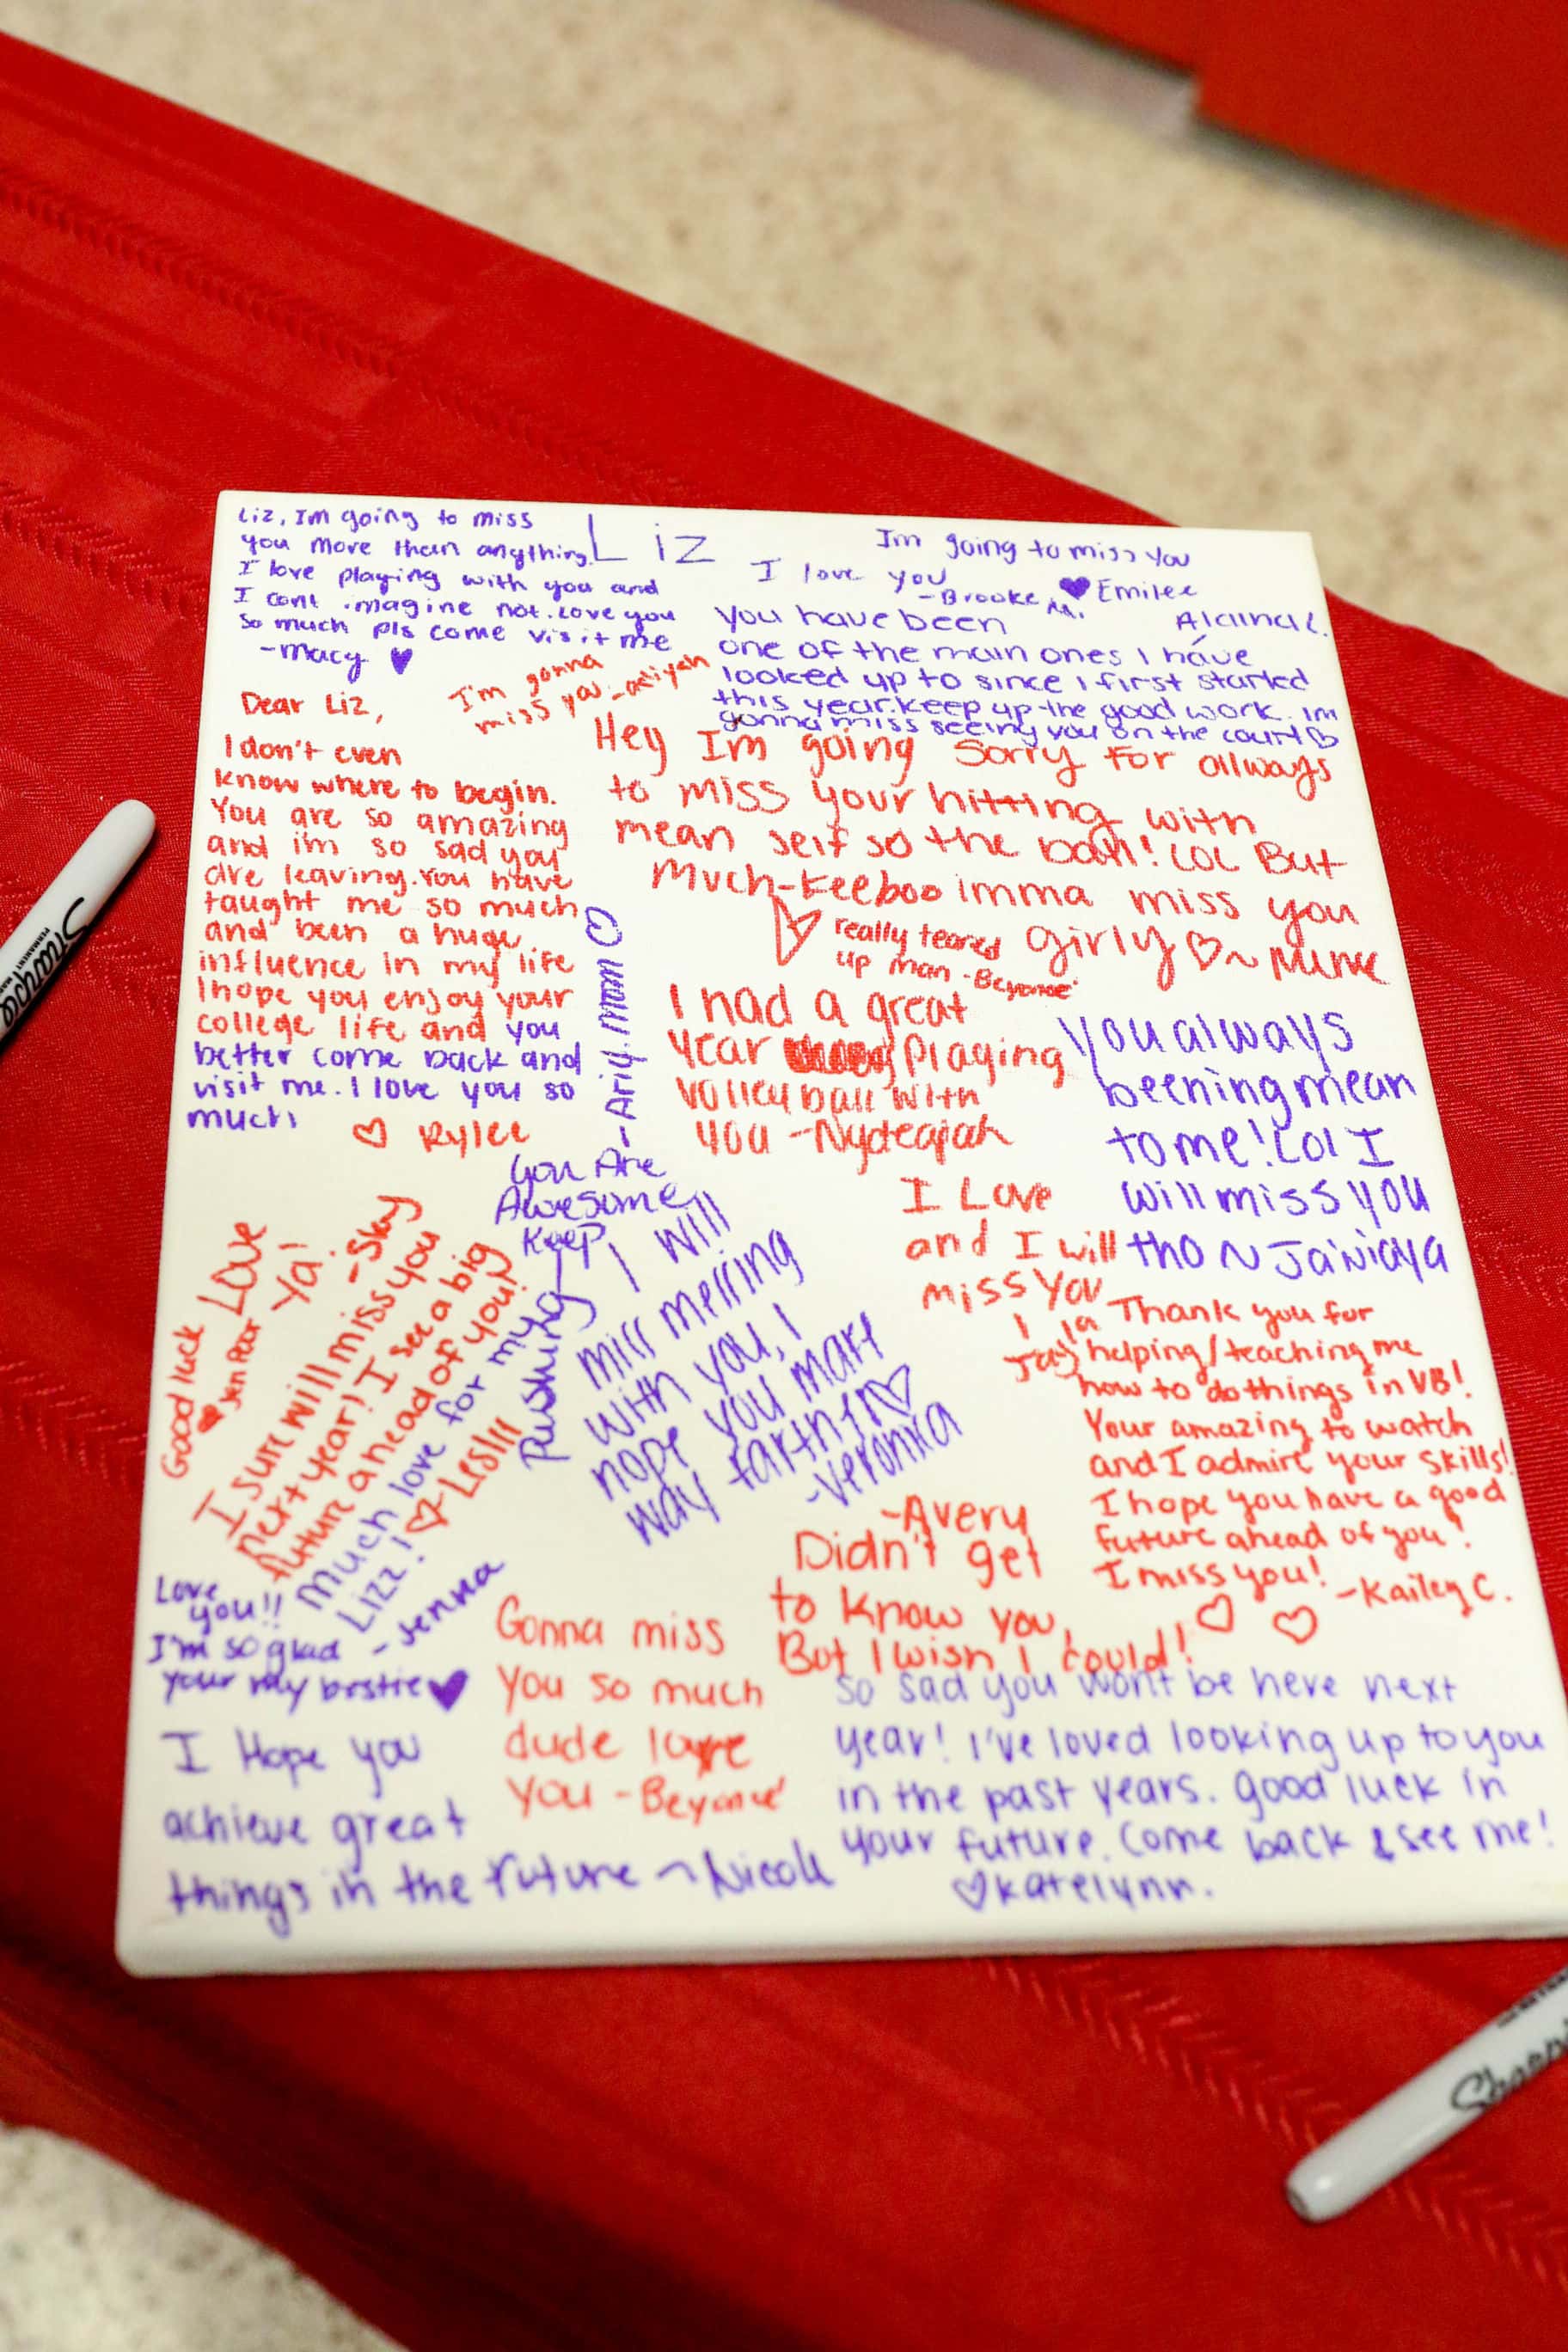 Liz, Im going to miss
you more than anything.
I love playing with you and
I cant imagine not. Love you
so much pls come visit me
-Macy ♥
Liz
I love you
-Brooke M.
Im going to miss you
♥ Emilee
Alaina L.
You have been
one of the main ones I have
looked up to since I first started
this year. keep up the good work. Im
gonna miss seeing you on the court ♡
I'm gonna
miss you
Dear Liz,
I don't even
know where to begin.
You are so amazing
and im so sad you
are leaving. You have
taught me so much
and been a huge
influence in my life
I hope you enjoy your
college life and you
better come back and
visit me. I love you so
much!
♡ Rylee
Hey Im going
to miss your
mean self so
Much-Keeboo
♡
Sorry for allways
hitting with
the ball! LOL But
imma miss you
girly ♡~
really teared
up man -Beyonce'
I had a great
year playing
volleyball with
you -Nydeajah
You always
beening mean
to me! Lol I
will miss you
tho ~ Ja'Niaya
You Are
Awesome
Keep
Pushing
-Ariy. mom ♡
I Love
and I will
miss you
Jay
I will
miss merring
with you, I
hope you mark
way farthɪr ♡
-Veronika
Good luck
♥ Jen Poor
Love
Ya!
-Sky
I sure will miss you
next year! I see a big
future ahead of you!
♡-Leslie
Much love for my
Lizz!
-Jenna
Thank you for
helping/teaching me
how to do things in VB!
Your amazing to watch
and I admire your skills!
I hope you have a good
future ahead of you!
I miss you!
♡ ♡ -Kailey C.
-Avery
Didn't get
to know you,
But I wish I could!
Love
you!!
I'm so glad
your my bestie ♥
Gonna miss
you so much
dude love
you -Beyonce'
I Hope you
achieve great
things in the future ~Nicole
So sad you wont be here next
year! I've loved looking up to you
in the past years. Good luck in
your future. Come back & see me!
♡ Katelynn.
Sharpie
PERMANENT